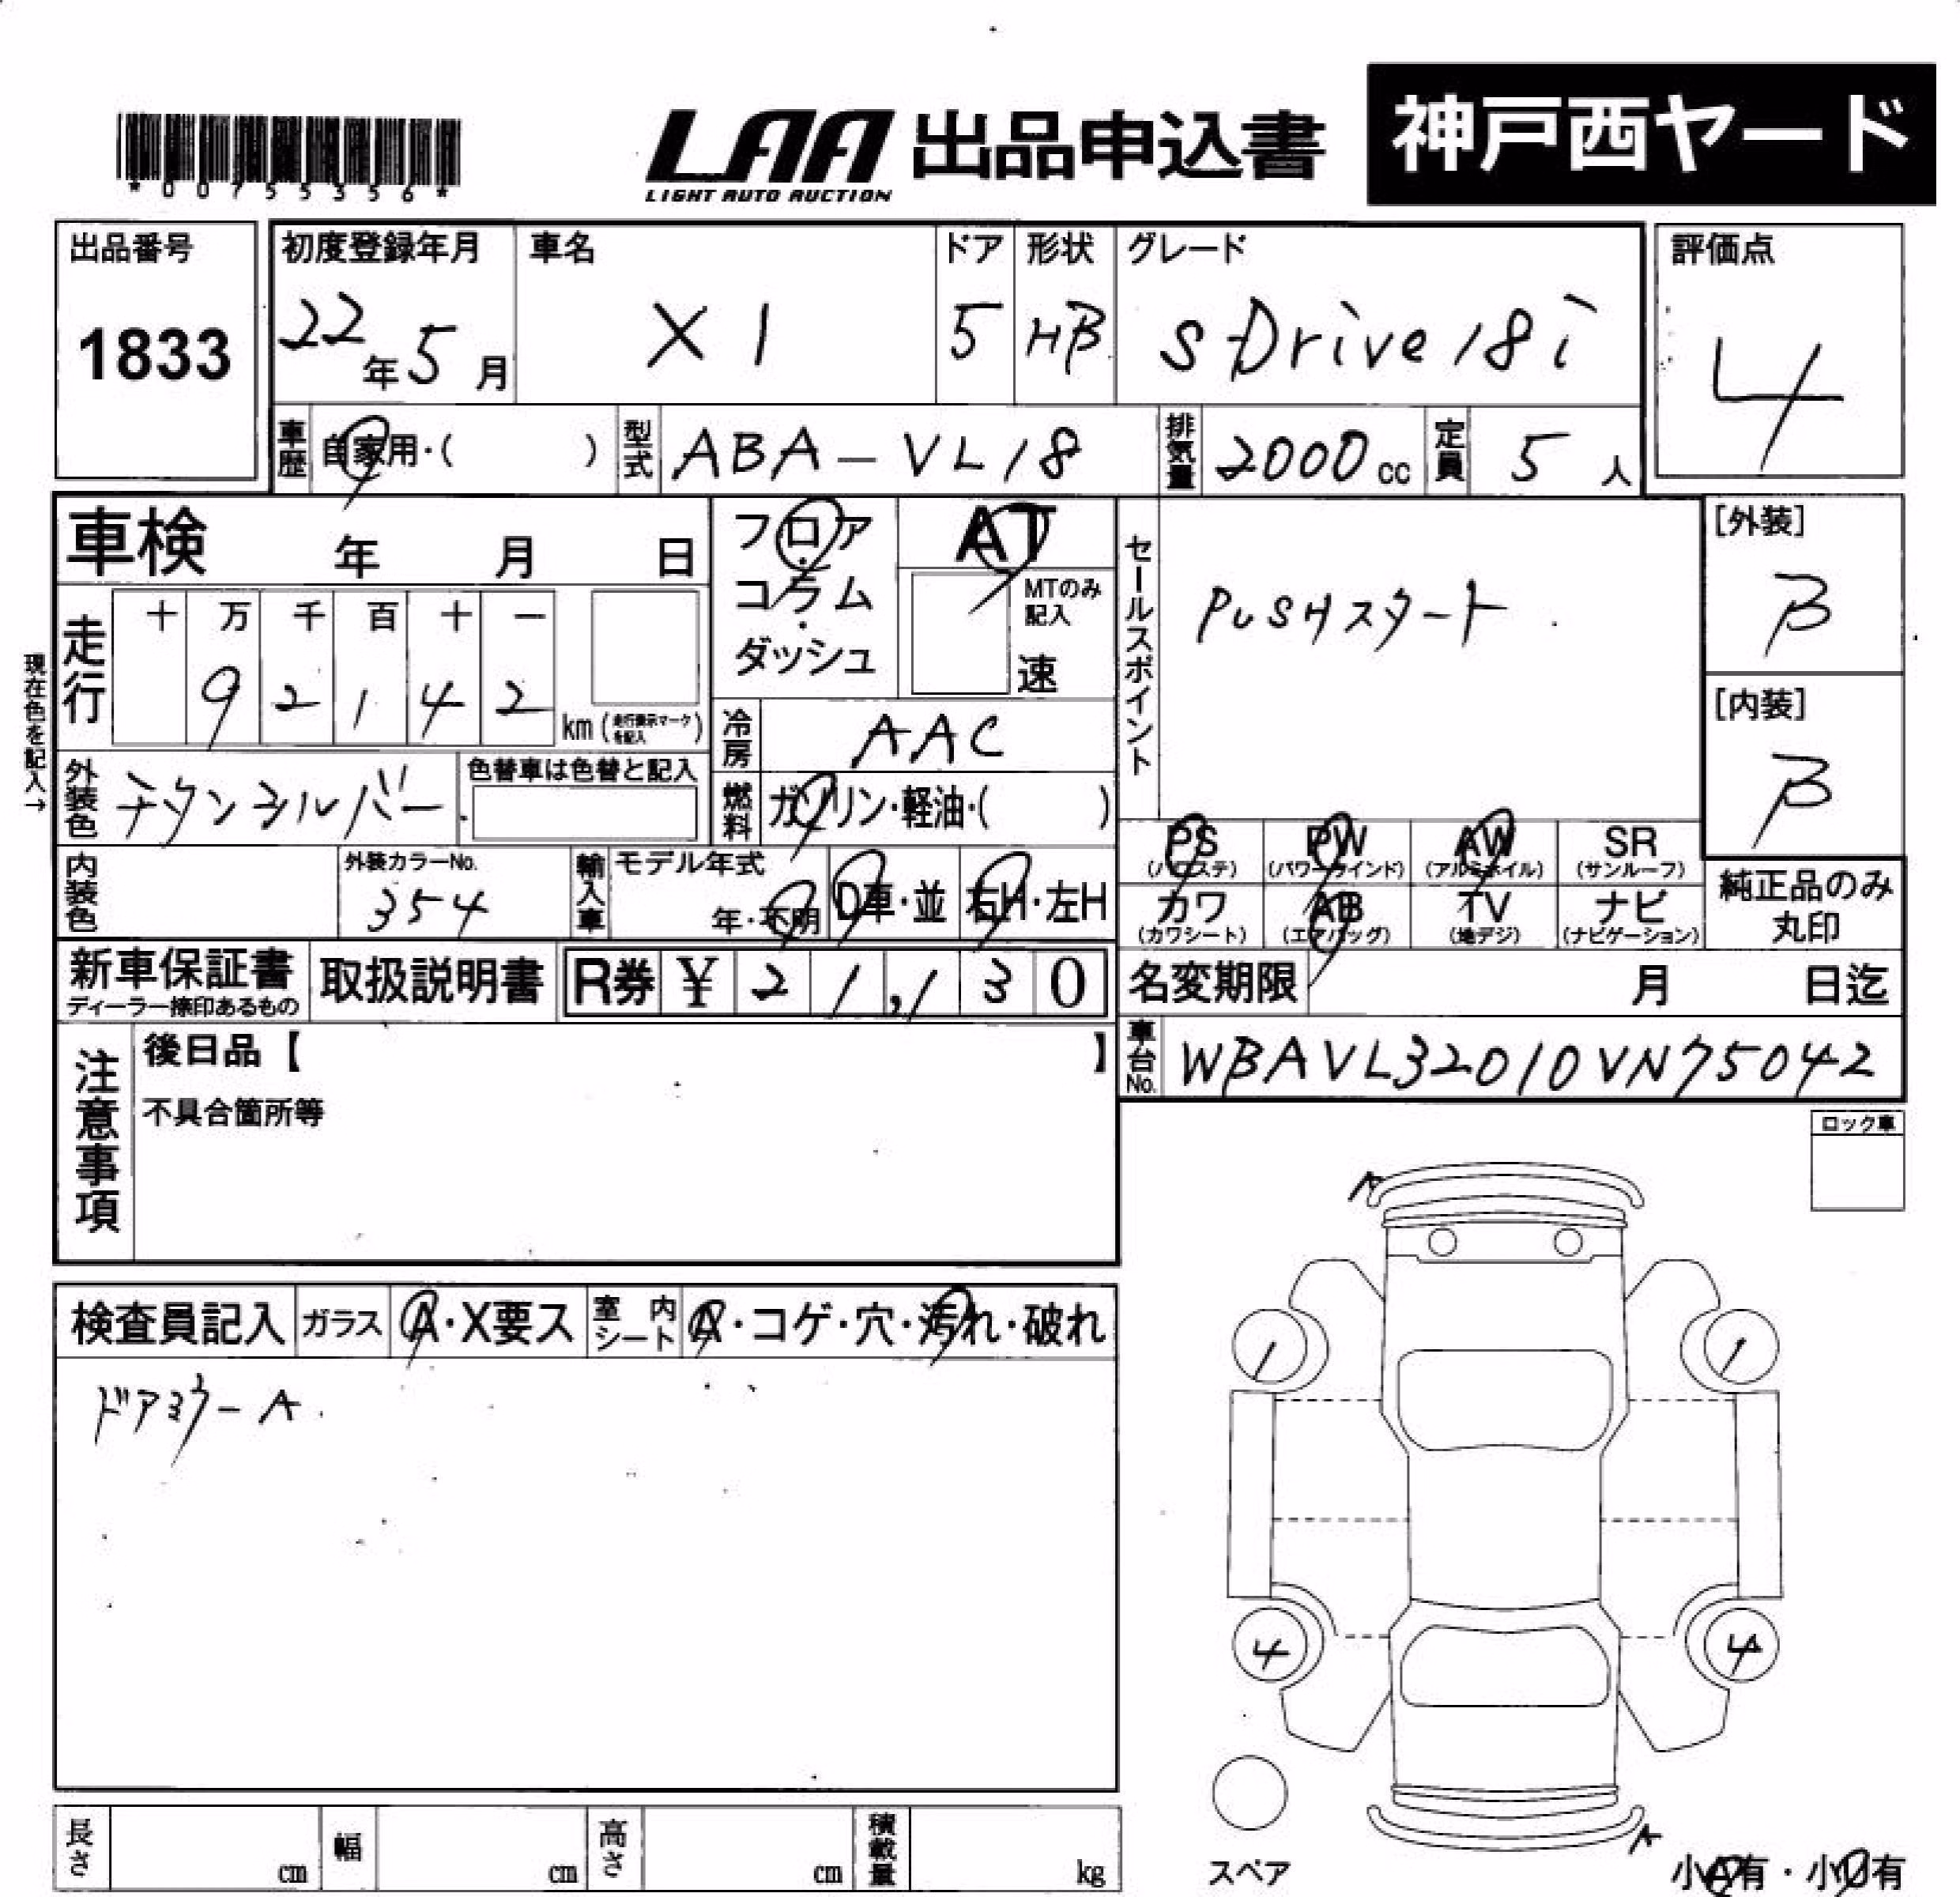 *00755356*
LAA 出品申込書 神戸西ヤード
LIGHT AUTO AUCTION
出品番号 初度登録年月 車名 ドア 形状 グレード 評価点
1833 22年5月 X1 5 HB sDrive18i 4
車歴 自家用・( ) 型式 ABA-VL18 排気量 2000cc 定員 5人
車検 年 月 日 フロア・コラム・ダッシュ AT MTのみ記入 速
セールスポイント PUSHスタート
[外装] B
[内装] B
現在色を記入→
走行 十 万 千 百 十 一
9 2 1 4 2 km (走行表示マークを記入)
冷房 AAC
外装色 チタンシルバー 色替車は色替と記入 燃料 ガソリン・軽油・( )
PS (パワステ) PW (パワーウインド) AW (アルミホイル) SR (サンルーフ)
カワ (カワシート) AB (エアバッグ) TV (地デジ) ナビ (ナビゲーション)
純正品のみ丸印
内装色 外装カラーNo. 354 輸入車 モデル年式 年・不明 D車・並 右H・左H
新車保証書 ディーラー捺印あるもの 取扱説明書 R券 ¥ 21,130 名変期限 月 日迄
車台No. WBAVL32010VN75042
注意事項 後日品【 】
不具合箇所等
ロック車
A
検査員記入 ガラス A・X要ス 室内シート A・コゲ・穴・汚れ・破れ
ドアミラーA
/ /
4 4
スペア
A
小A有・小U有
長さ cm 幅 cm 高さ cm 積載量 kg